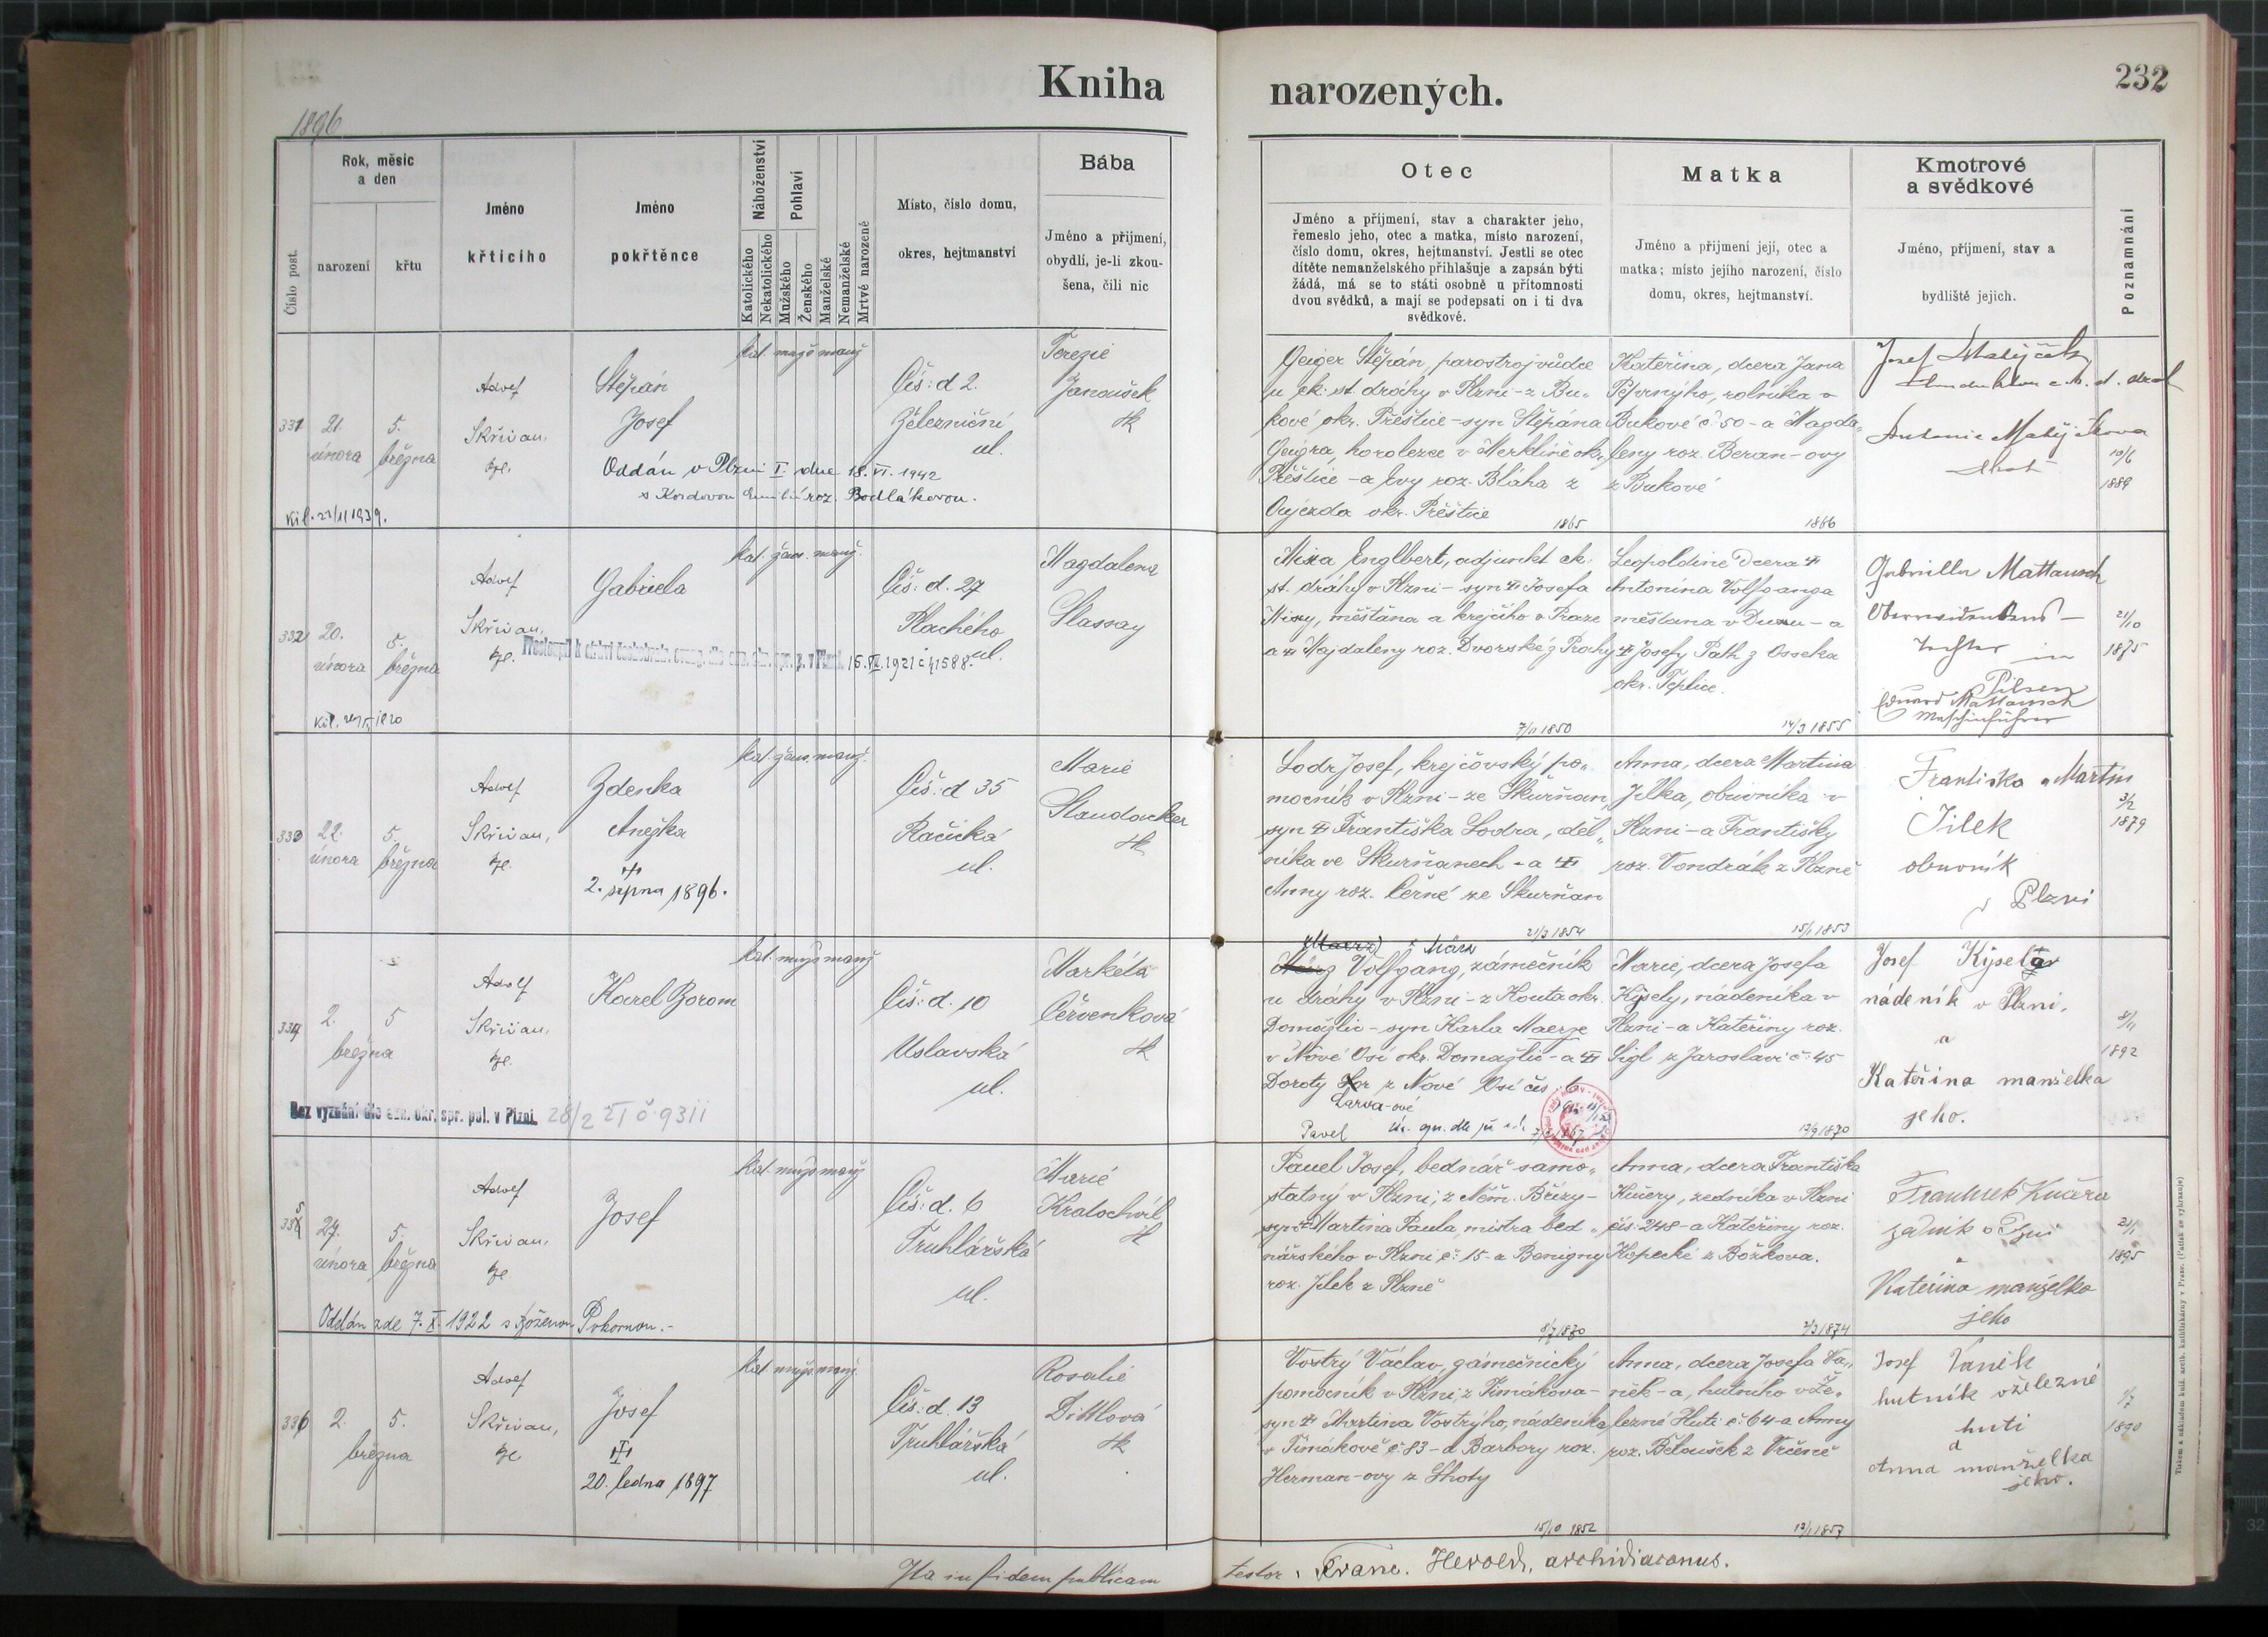 Kniha
narozených.
232
1896
Číslo post.
Rok, měsíc
a den
narození
křtu
Jméno
křticího
Jméno
pokřtěnce
Náboženství
Katolického
Nekatolického
Pohlaví
Mužského
Ženského
Manželské
Nemanželské
Mrtvě narozené
Místo, číslo domu,
okres, hejtmanství
Bába
Jméno a přijmení,
obydlí, je-li zkou-
šena, čili nic
Otec
Jméno a příjmení, stav a charakter jeho,
řemeslo jeho, otec a matka, místo narození,
číslo domu, okres, hejtmanství. Jestli se otec
dítěte nemanželského přihlašuje a zapsán býti
žádá, má se to státi osobně u přítomnosti
dvou svědků, a mají se podepsati on i ti dva
svědkové.
Matka
Jméno a přijmení její, otec a
matka; místo jejího narození, číslo
domu, okres, hejtmanství.
Kmotrové
a svědkové
Jméno, příjmení, stav a
bydliště jejich.
Poznamnání
331
21.
února
5.
března
Adolf
Skřivan,
Štěpán
Josef
Oddán v Plzni I. dne 18.VI.1942
roz. Bodlákovou.
kat. muž. manž
Čís: d 2.
Železniční
ul.
Terezie
Janoušek
Geiger Štěpán, parostrojvůdce
u ck. st. dráhy v Plzni - z Bu-
kové okr. Přeštice - syn Štěpána
Geigra, v Merklíně okr.
Přeštice - a Evy roz. Bláha z
Oujezda okr. Přeštice
1865
Kateřina, dcera Jana
rolníka v
Bukové č. 50 - a Magda-
leny roz. Beran-ovy
z Bukové
1866
Josef Matějček
Antonie Matějčkova
10/6
1889
332
20.
února
5.
března
Adolf
Skřivan,
Gabriela
15.VII.1921 č 41588.
kat. žen. manž.
Čís: d. 27
Plachého
ul.
Magdalena
Slassay
Mixa Englbert, adjunkt ck.
st. dráhy v Plzni - syn Josefa
Mixy, měštana a krejčího v Praze
a Majdaleny roz. Dvorské z Prahy
7/11 1850
Leopoldine dcera
Antonína Volfganga
měštana v Duxu - a
Josefy Path z Osseka
okr. Teplice.
14/3 1855
Gabriella Mattausch
in
Pilsen
Eduard Mattausch
Maschinführer
21/10
1875
333
22.
února
5.
března
Adolf
Skřivan,
Zdenka
Anežka
2. srpna 1896.
kat. žen. manž.
Čís: d 35
Račická
ul.
Marie
Staudacker
Lodr Josef, krejčovský po-
mocník v Plzni - ze Skurňan
syn Františka Lodra, děl-
níka ve Skurňanech - a
Anny roz. Černé ze Skurňan
21/3 1854
Anna, dcera Martina
Jílka, obuvníka v
Plzni - a Františky
roz. Vondrák z Plzně
15/1 1853
Františka a Martin
Jílek
obuvník
v Plzni
3/2
1879
334
2.
5
března
Adolf
Skřivan,
Karel Borom
Bez vyznání dle ozn. okr. spr. pol. v Plzni. 28/2 21 č. 9311
kat. muž. manž
Čís: d. 10
Uslavská
ul.
Markéta
Červenková
Volfgang, zámečník
u dráhy v Plzni - z Kouta okr.
Domažlic - syn Karla Maerze
v Nové Osi okr. Domažlic - a
Doroty z Nové Osi čís. 6
Marie, dcera Josefa
Kysely, nádeníka v
Plzni - a Kateřiny roz.
Sigl z Jaroslavi č. 45
12/9 1870
Josef Kysela
nádeník v Plzni.
a
Kateřina manželka
jeho.
8/11
1892
335
27.
února
5.
března
Adolf
Skřivan,
Josef
Oddán zde 7.X.1922 s Boženou Pokornou.-
kat. muž. manž
Čís: d. 6
Truhlářská
ul.
Marie
Kratochvíl
Pavel
Pauel Josef, bednář samo-
statný v Plzni, z Něm. Břízy -
syn Martina Paula, mistra bed-
nářského v Plzni č: 15 - a Benigny
roz. Jílek z Plzně
8/7 1870
Anna, dcera Františka
Kučery, zedníka v Plzni
čís. 248 - a Kateřiny roz.
Kopecké z Božkova.
2/3 1874
František Kučera
zedník v Plzni
a
Kateřina manželka
jeho
21/1
1895
336
2.
5.
března
Adolf
Skřivan,
Josef
20. ledna 1897
kat. muž. manž.
Čís: d. 13
Truhlářská
ul.
Rosalie
Dittlová
Vostrý Václav, zámečnický
pomocník v Plzni, z Timákova -
syn Martina Vostrýho, nádeníka
v Timákově č: 83 - a Barbory roz.
Herman-ovy z Lhoty
15/10 1852
Anna, dcera Josefa Va-
něk - a, hutního v Že-
lezné Huti č: 64 - a Anny
roz. Běloušek z Vrčeně
12/1 1857
Josef Vaněk
hutník v železné
huti
a
Anna manželka
jeho.
1/7
1890
Ita in fidem publicam
testor, Franc. Herold, archidiaconus.